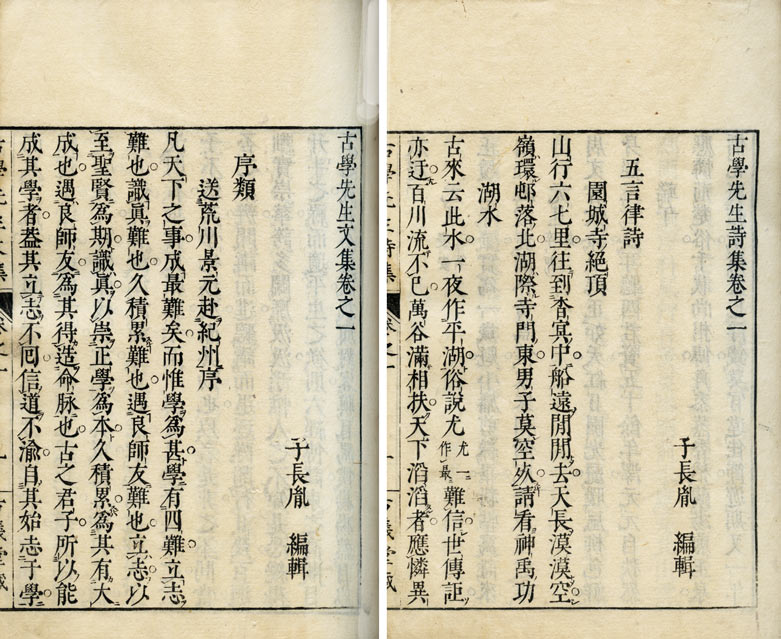 古學先生詩集卷之一
子長胤 編輯
五言律詩
園城寺絶頂
山行六七里往到杳冥中船遠閒閒去天長漠漠空
嶺環邨落北湖際寺門東男子莫空死請看神禹功
湖水
古來云此水一夜作平湖俗說尤尤一作最難信世傳詎
亦迂百川流不已萬谷滿相扶天下滔滔者應憐異
古學先生文集卷之一
子長胤 編輯
序類
送荒川景元赴紀州序
凡天下之事成最難矣而惟學爲甚學有四難立志
難也識眞難也久積累難也遇良師友難也立志以
至聖賢爲期識眞以崇正學爲本久積累爲其有大
成也遇良師友爲其得造命脉也古之君子所以能
成其學者葢其立志不回信道不渝自其始志于學